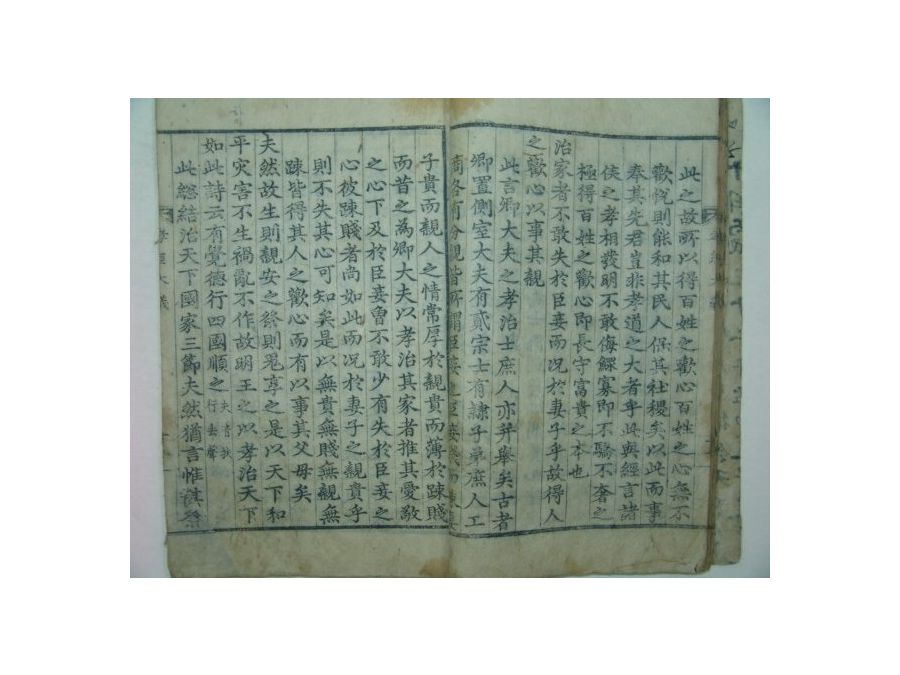 此之故所以得百姓之歡心百姓之心無不
歡悅則能和其民人保其社稷矣以此而事
奉其先君豈非孝道之大者乎此與經言諸
侯之孝相發明不敢侮鰥寡即不驕不奢之
極得百姓之歡心即長守富貴之本也
治家者不敢失於臣妾而况於妻子乎故得人
之歡心以事其親
此言卿大夫之孝治士庶人亦并舉矣古者
卿置側室大夫有貳宗士有隷子弟庶人工
商各有分親皆所謂臣妾
子貴而親人之情常厚於親貴而薄於疎賤
而昔之為卿大夫以孝治其家者推其愛敬
之心下及於臣妾曾不敢少有失於臣妾之
心彼疎賤者尚如此而况於妻子之親貴乎
則不失其心可知矣是以無貴無賤無親無
疎皆得其人之歡心而有以事其父母矣
夫然故生則親安之祭則鬼享之是以天下和
平灾害不生禍亂不作故明王之以孝治天下
如此詩云有覺德行四國順之夫音扶行去聲
此総結治天下國家三節夫然猶言惟其然
孝經大義